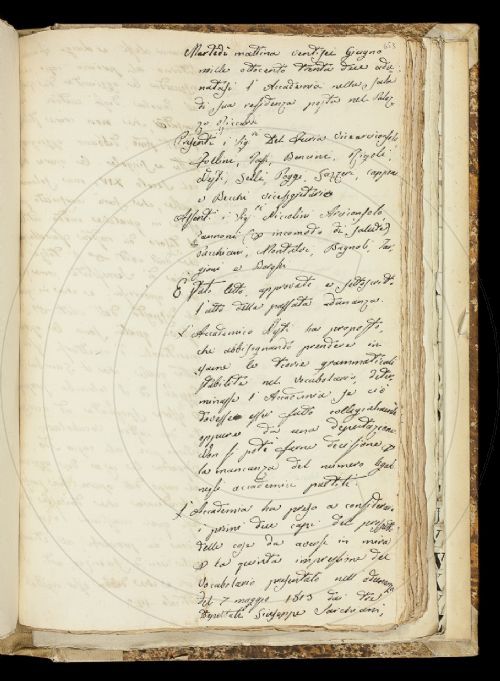 653
Martedì mattina ventisei Giugno
mille ottocento trenta due adu-
natasi l'Accademia nella sala
di sua residenza posta nel Palaz-
zo Riccardi
Presenti i Sig.ri Del Furia Vicearciconsolo
Follini, Rosi, Bencini, Rigoli,
Lysti, Poggi, Gazzeri, Capponi
e Becchi vicesegretario
Assenti i Sig.ri Niccolini Arciconsolo,
Zannoni (p incomodo di salute)
Sarchiani, Montalvi, Bagnoli, Tar-
gioni e Borghi
È stato letto, approvato e sottoscritto
l'atto della passata adunanza.
L'Accademico Lysti ha proposto,
che abbisognando prendere in
esame le teorie grammaticali
stabilite nel vocabolario, deter-
minasse l'Accademia se ciò
dovesse esser fatto collegialmente
oppure da una deputazione.
Non si potè farne decisione p
la mancanza del numero legale
nelle accademiche partite.
L'Accademia ha preso a considerare
i primi due capi del progetto
delle cose da aversi in mira
p la quinta impressione del
Vocabolario presentato nell'adunanza
del 7 maggio 1813 dai
Deputati Giuseppe Sarchiani,